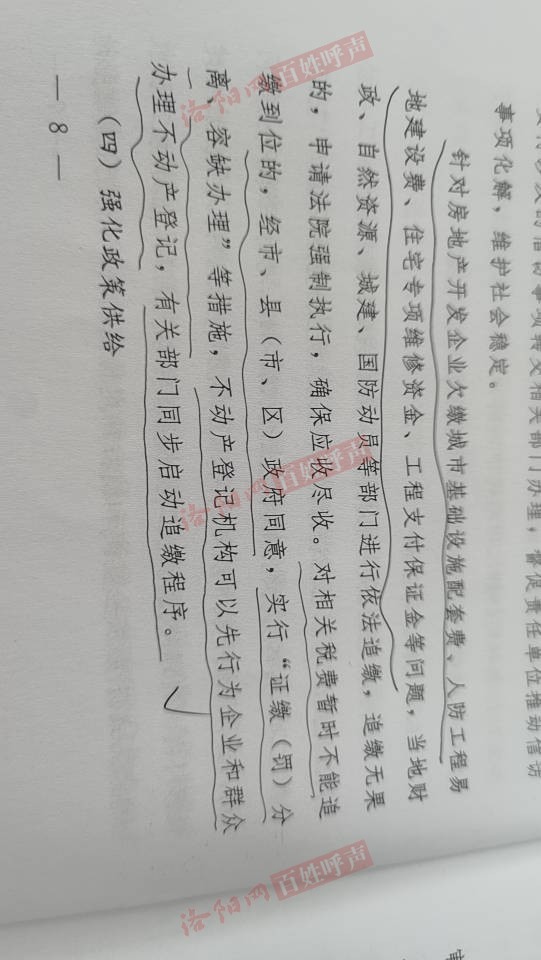 事项化解，维护社会稳定。
针对房地产开发企业欠缴城市基础设施配套费、人防工程易
地建设费、住宅专项维修资金、工程支付保证金等问题，当地财
政、自然资源、城建、国防动员等部门进行依法追缴，追缴无果
的，申请法院强制执行，确保应收尽收。对相关税费暂时不能追
缴到位的，经市、县（市、区）政府同意，实行“证缴（罚）分
离、容缺办理”等措施，不动产登记机构可以先行为企业和群众
办理不动产登记，有关部门同步启动追缴程序。
（四）强化政策供给
— 8 —
洛阳网百姓呼声
洛阳网百姓呼声
洛阳网百姓呼声